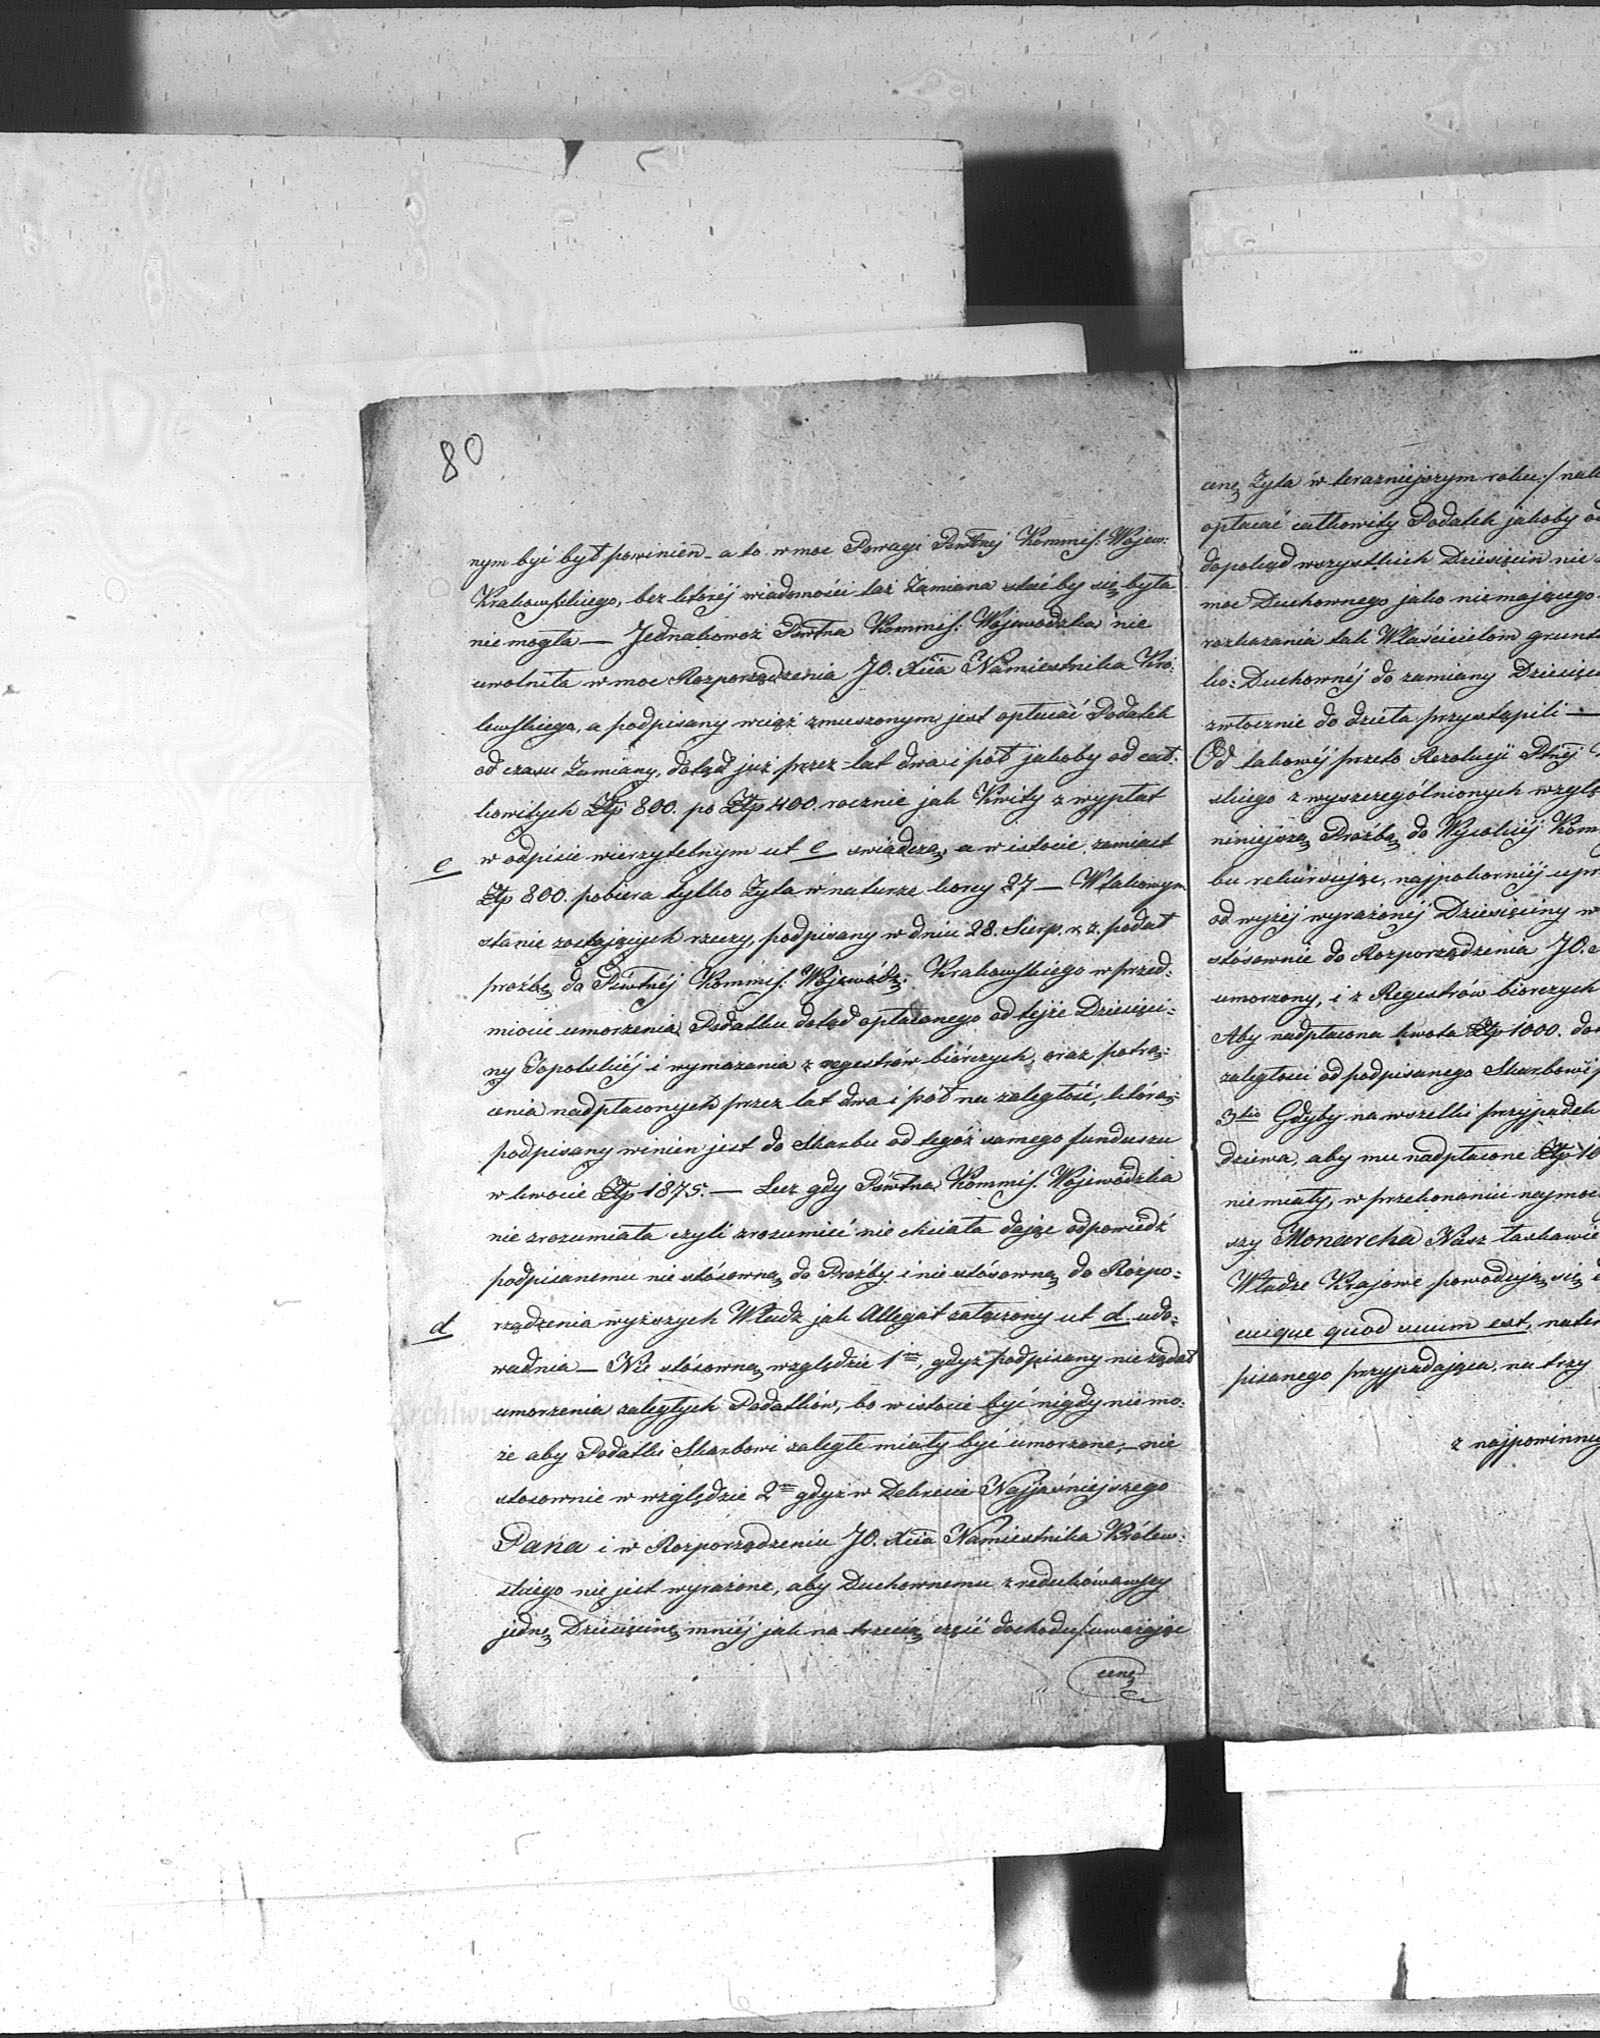 80
nym być był powinien - a to w moc Powagi Prwtnej Kommis: Wojew:
Krakowskiego, bez którey wiadomości taż Zamiana stać by się była
nie mogła — Jednakowoż Prwtna Kommis: Wojewodzka nie
uwolniła w moc Rozporządzenia JO. Xcia Namiestnika Kró:
lewskiego, a podpisany wciąż zmuszonym jest opłacać Podatek
od czasu Zamiany, dotąd już przez lat dwa i pół jakoby od cał:
kowitych Złp 800. po Złp 400. rocznie jak Kwity z wypłat
c
w odpisie wierzytelnym ut c świadczą, a w istocie zamiast
Złp 800. pobiera tylko Zyta w naturze korcy 27 — W takowym
stanie zostających rzeczy, podpisany w dniu 28. Sierp. r. z. podał
prożbę do Prwtnéj Kommis: Wojewódz: Krakowskiego w przed:
miocie umorzenia Podatku dotąd opłaconego od tejże Dziesięci:
ny Topolskiéj i wymazania z regestrów biórczych, oraz potrą:
cenia nadpłaconych przez lat dwa i pół na zaległość, którą
podpisany winien jest do Skarbu od tegóż samego funduszu
w kwocie Złp 1875. — Lecz gdy Prwtna Kommis. Wojewódzka
nie zrozumiała czyli zrozumieć nie chciała dając odpowiedź
podpisanemu nie stósowną do Prożby i nie stósowną do Rózpo:
d
rządzenia wyższych Władz jak Allegat załączony ut d udo:
wadnia — Nie stósowną względzie 1mo, gdyż podpisany nie żądał
umorzenia zaległych Podatków, bo w istocie być nigdy nie mo:
że aby Podatki Skarbowi zaległe miały być umorzone, — nie
stosownie w względzie 2do gdyż w Dekrecie Najjaśniejszego
Pana i w Rozporządzeniu JO. Xcia Namiestnika Królew:
skiego nie jest wyrażone, aby Duchownemu zredukówawszy
jednę Dziesięcinę mniéj jak na trzecią część dochodu/:uważając
cenę
cenę Zyta w terazniejszym roku:/
opłacać całkowity Podatek jakoby
dopokąd wszystkich Dziesięcin nie
moc Duchownego jako nie mającego
rozkazania tak Właścicielom
ko: Duchownéj do zamiany
zwłocznie do dzieła przystąpili —
Od takowéj przeto Rezolucji
skiego z wyszczególnionych
niniejszą Prożbą do Wysokiéj
bu rekursując, najpokorniéj
od wyżéj wyrażonéj Dziesięciny w
stósownie do Rozporządzenia JO.
umorzony, i z Regestrów biorczych
Aby nadpłacona kwota Złp 1000.
zaległosci od podpisanego Skarbowi
3tio Gdyby na wszelki przypadek
dziewa, aby mu nadpłacone Złp
nie miały, w przekonaniu
szy Monarcha Nasz łaskawie
Władze Krajowe powodują się
cuique quod suum est,
pisanego przypadająca, na trzy
z